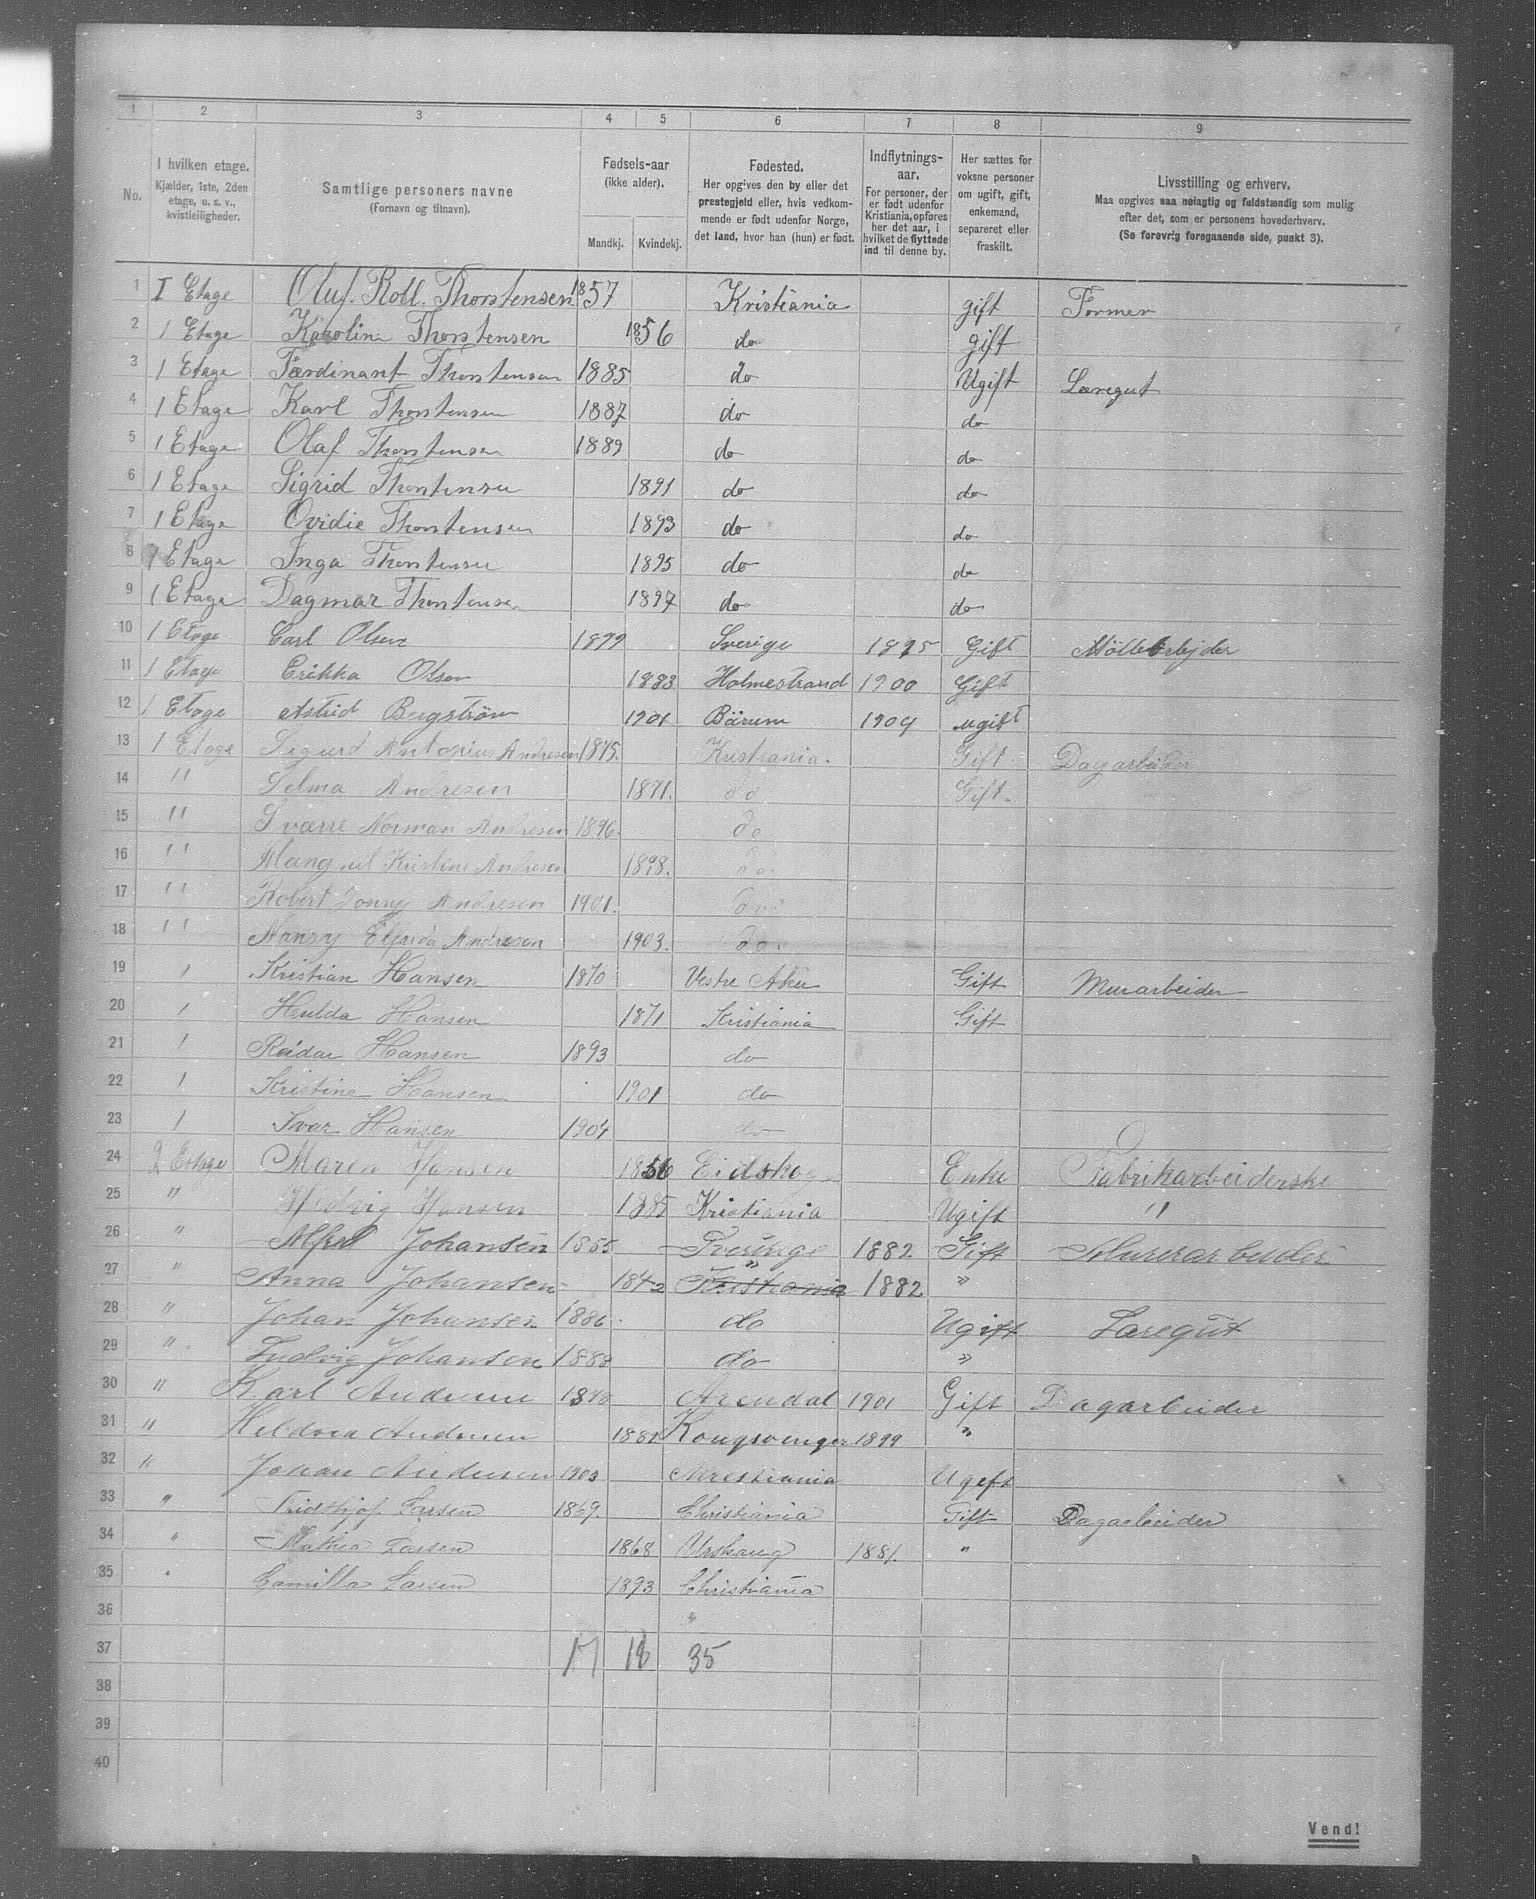 1 2 3 4 5 6 7 8 9
No.
I hvilken etage.
Kjælder, 1ste, 2den
etage, o. s. v.,
kvistleiligheder.
Samtlige personers navne
(Fornavn og tilnavn).
Fødsels-aar
(ikke alder).
Mandkj. Kvindekj.
Fødested.
Her opgives den by eller det
prestegjeld eller, hvis vedkom-
mende er født udenfor Norge,
det land, hvor han (hun) er født.
Indflytnings-
aar.
For personer, der
er født udenfor
Kristiania, opføres
her det aar, i
hvilket de flyttede
ind til denne by.
Her sættes for
voksne personer
om ugift, gift,
enkemand,
separeret eller
fraskilt.
Livsstilling og erhverv.
Maa opgives saa nøiagtig og fuldstændig som mulig
efter det, som er personens hovederhverv.
(Se forøvrig foregaaende side, punkt 3).
1 I Etage Oluf. Roll. Thorstensen 1857 Kristiania gift Former
2 1 Etage Karoline Thorstensen 1856 do gift
3 1 Etage Færdinant Thorstensen 1885 do Ugift Læregut
4 1 Etage Karl Thorstensen 1887 do do
5 1 Etage Olaf Thorstensen 1889 do do
6 1 Etage Sigrid Thorstensen 1891 do do
7 1 Etage Ovidie Thorstensen 1893 do do
8 1 Etage Inga Thorstensen 1895 do do
9 1 Etage Dagmar Thorstensen 1897 do do
10 1 Etage Carl Olsen Sverige Gift
11 1 Etage Erikka Olsen 1883 Holmestrand 1900 Gift
12 1 Etage Astrid Bugström 1901 Bärum 1904 ugift
13 1 Etage Sigurd Antonius Andresen 1875. Kristiania. Gift Dagarbeider
14 " Selma Andresen 1871. do Gift.
15 " Sværre Norman Andresen 1896. do.
16 " Kristine Andresen 1898. do.
17 " Robert Andresen 1901. do.
18 " Nansy Elfrida Andresen 1903. do.
19 1 Kristian Hansen 1870 Vestre Aker Gift Murarbeider
20 1 Hulda Hansen 1871 Kristiania Gift
21 1 Reidar Hansen 1893 do
22 1 Kristine Hansen 1901 do
23 1 Ivar Hansen 1904 do
24 2 Etage Maren Hansen 1856 Eidskog Enke Fabrikarbeiderske
25 " Hedvig Hansen 1885 Kristiania Ugift "
26 " Alfred Johansen 1855 Sverige 1882 Gift Murerarbeider
27 " Anna Johansen 1842 " Kristiania 1882 "
28 " Johan Johansen 1886 do Ugift Læregut
29 " Ludvig Johansen 1888 do "
30 " Karl Andersen Arendal 1901 Gift Dagarbeider
31 " Andersen 1882 Kongsvenger 1899 "
32 " Johan Andersen 1903 Kristiania Ugift
33 " Fridthjof Larsen 1869. Christiania Gift Dagarbeider
34 " Mathea Larsen 1868 Urskaug 1881. "
35 " Camilla Larsen 1893 Christiania
36 "
37 17 18 35
38
39
40
Vend!